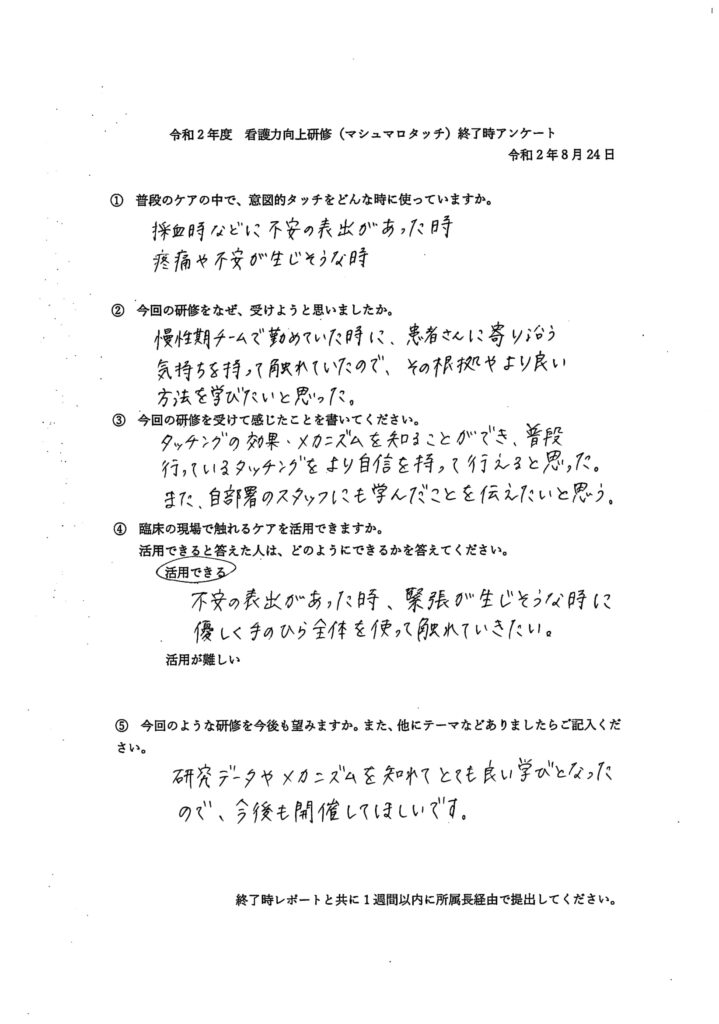 令和２年度　看護力向上研修（マシュマロタッチ）終了時アンケート
令和２年８月24日
① 普段のケアの中で、意図的タッチをどんな時に使っていますか。
採血時などに不安の表出があった時
疼痛や不安が生じそうな時
② 今回の研修をなぜ、受けようと思いましたか。
慢性期チームで勤めていた時に、患者さんに寄り沿う
気持ちを持って触れていたので、その根拠やより良い
方法を学びたいと思った。
③ 今回の研修を受けて感じたことを書いてください。
タッチングの効果・メカニズムを知ることができ、普段
行っているタッチングをより自信を持って行えると思った。
また、自部署のスタッフにも学んだことを伝えたいと思う。
④ 臨床の現場で触れるケアを活用できますか。
活用できると答えた人は、どのようにできるかを答えてください。
活用できる
不安の表出があった時、緊張が生じそうな時に
優しく手のひら全体を使って触れていきたい。
活用が難しい
⑤ 今回のような研修を今後も望みますか。また、他にテーマなどありましたらご記入くだ
さい。
研究データやメカニズムを知れてとても良い学びとなった
ので、今後も開催してほしいです。
終了時レポートと共に１週間以内に所属長経由で提出してください。